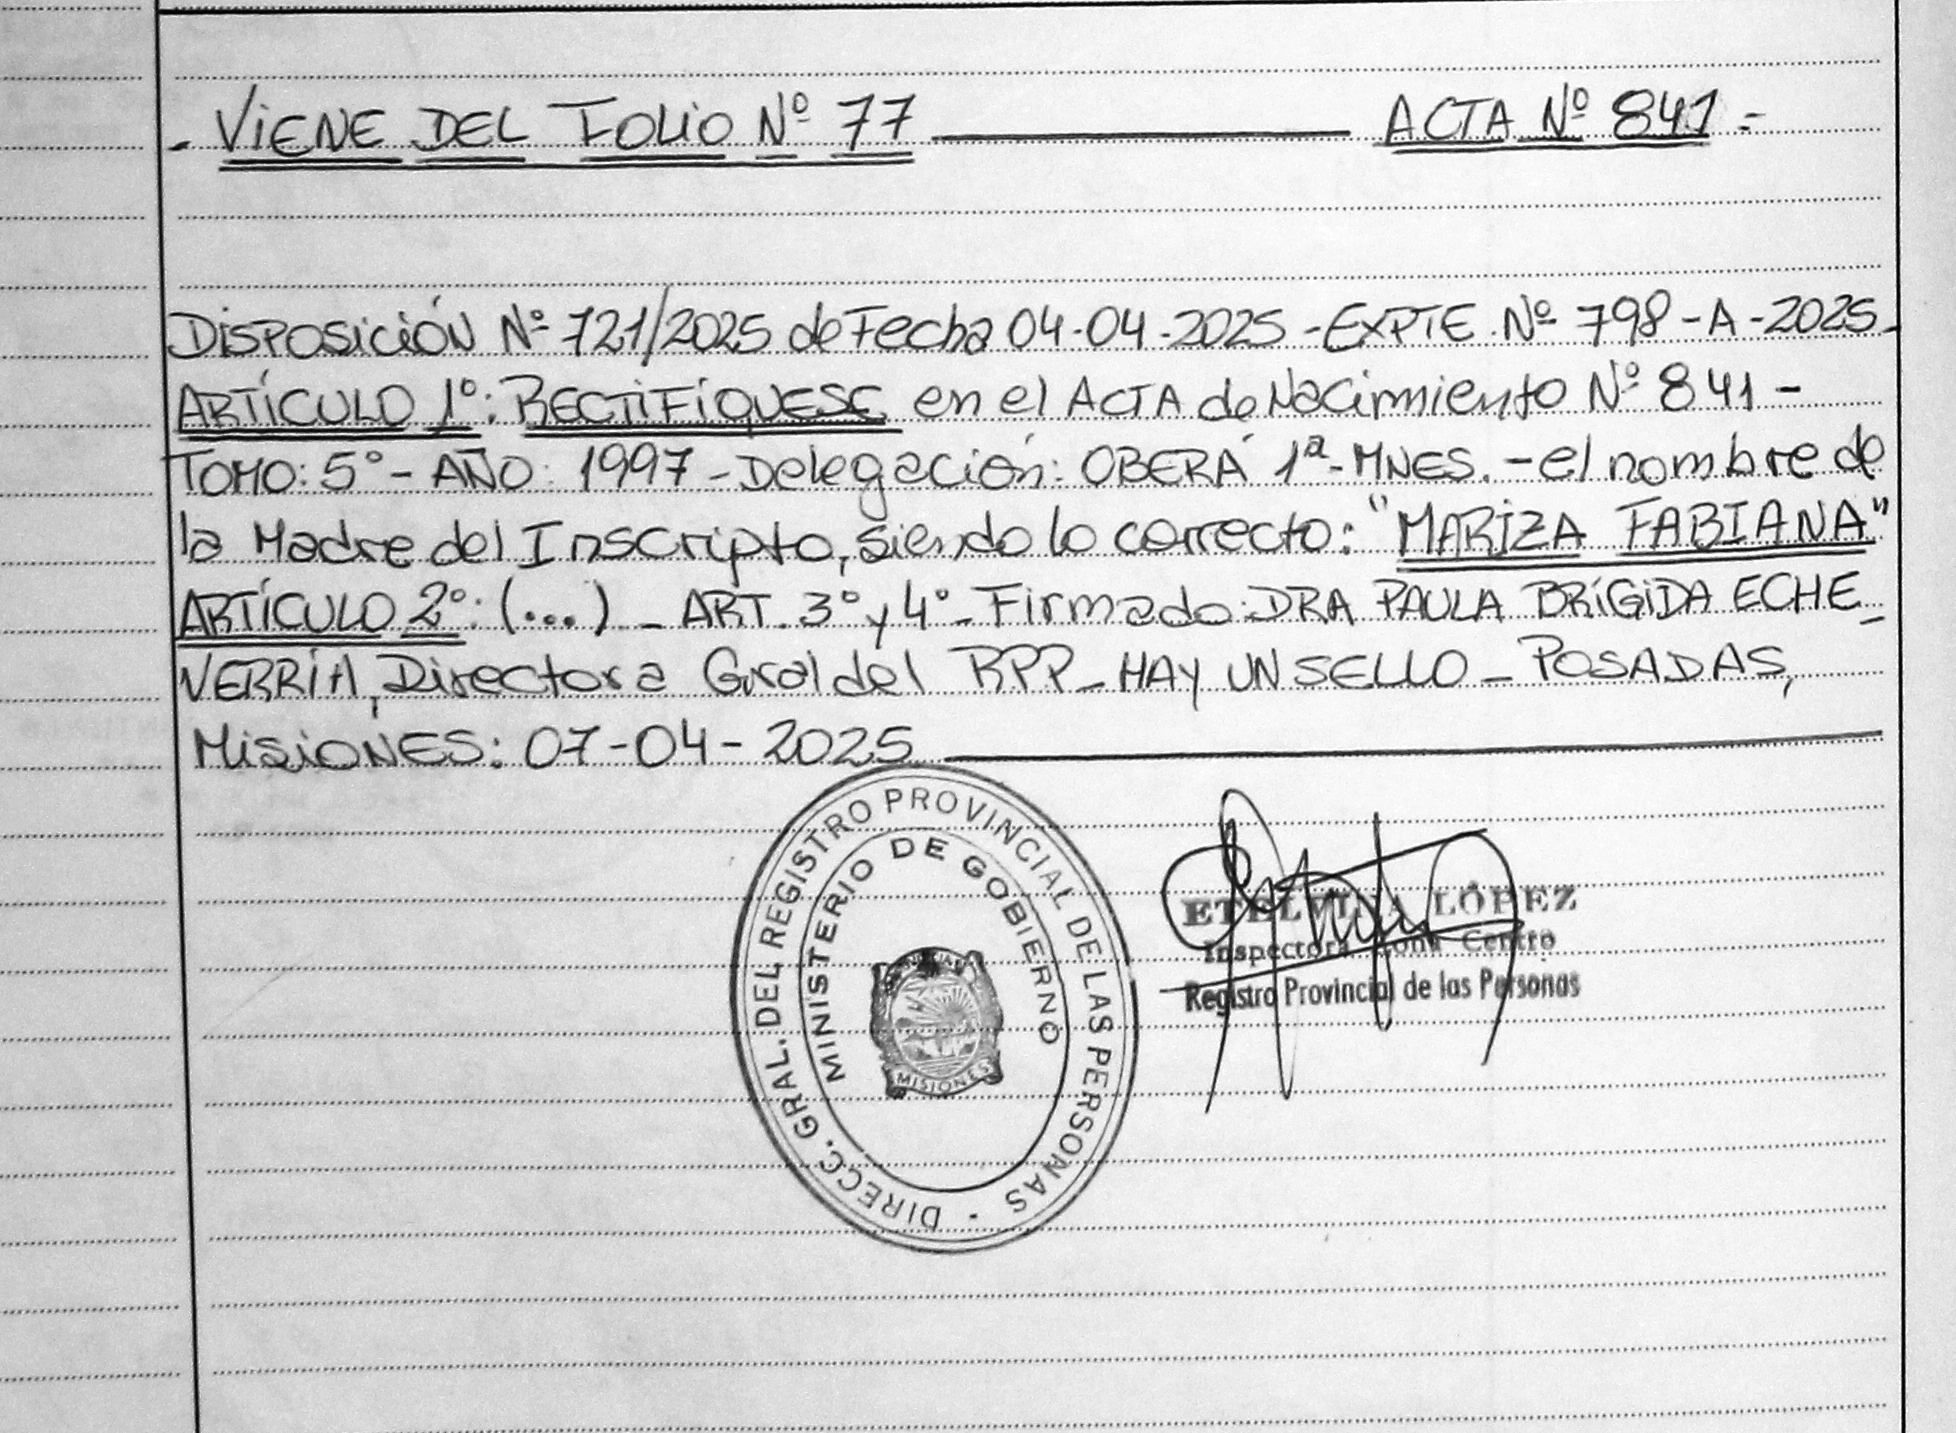 - VIENE DEL FOLIO Nº 77 ACTA Nº 841 -
DISPOSICIÓN Nº 721/2025 de Fecha 04-04-2025 - EXPTE Nº 798-A-2025-
ARTÍCULO 1º: RECTIFÍQUESE en el ACTA de Nacimiento Nº 841 -
TOMO: 5° - AÑO: 1997 - Delegación: OBERÁ 1ª - MNES. - el nombre de
la Madre del Inscripto, siendo lo correcto: "MARIZA FABIANA"
ARTÍCULO 2º: (...) - ART. 3° y 4° - Firmado: DRA PAULA BRÍGIDA ECHE_
VERRÍA, Directora Gral del RPP - HAY UN SELLO - POSADAS,
MISIONES: 07-04-2025
DIRECC. GRAL. DEL REGISTRO PROVINCIAL DE LAS PERSONAS -
MINISTERIO DE GOBIERNO
MISIONES
ETELVINA LÓPEZ
Inspectora Zona Centro
Registro Provincial de las Personas